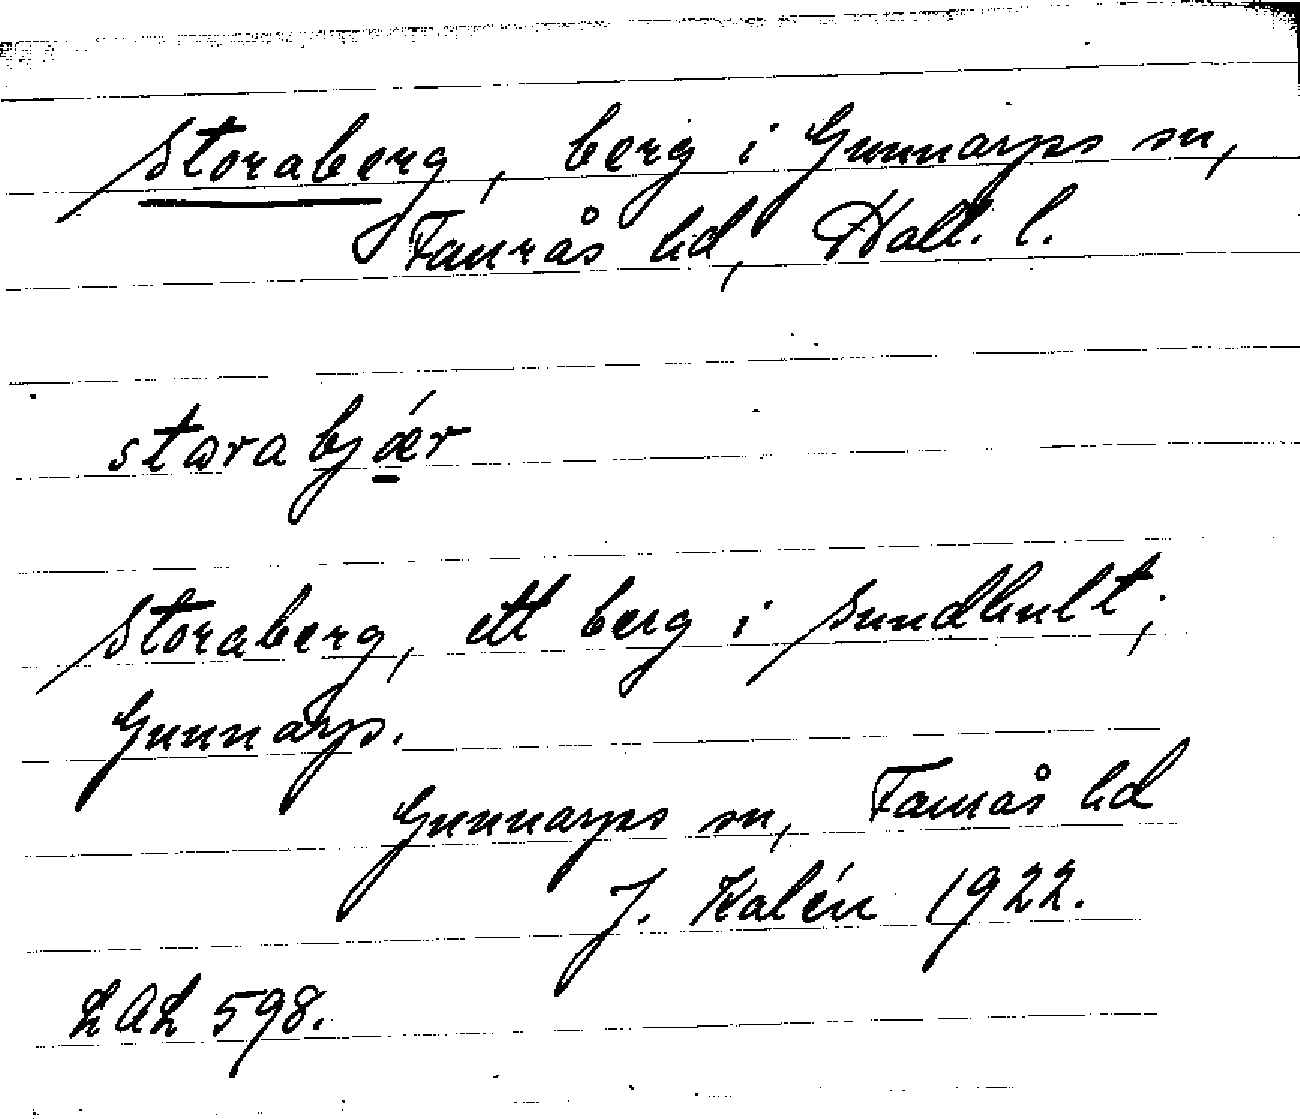 Storaberg, berg i Gunnarps sn,
Faurås hd, Hall. l.
starabjǽr
Storaberg, ett berg i Sundhult;
Gunnarp.
Gunnarps sn, Faurås hd
J. Kalén 1922.
LAL 598.